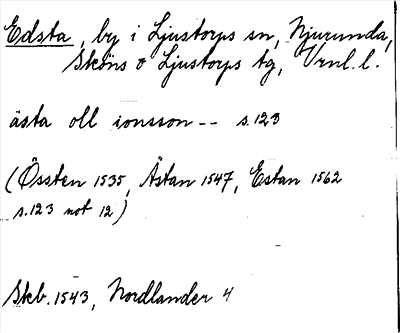 Edsta, by i Ljustorps sn, Njurunda,
Sköns o Ljustorps tg, Vrnl. l.
ästa oll ionsson -- s.123
(Össten 1535, Ästan 1547, Estan 1562
s.123 not 12)
Skb. 1543, Nordlander 4